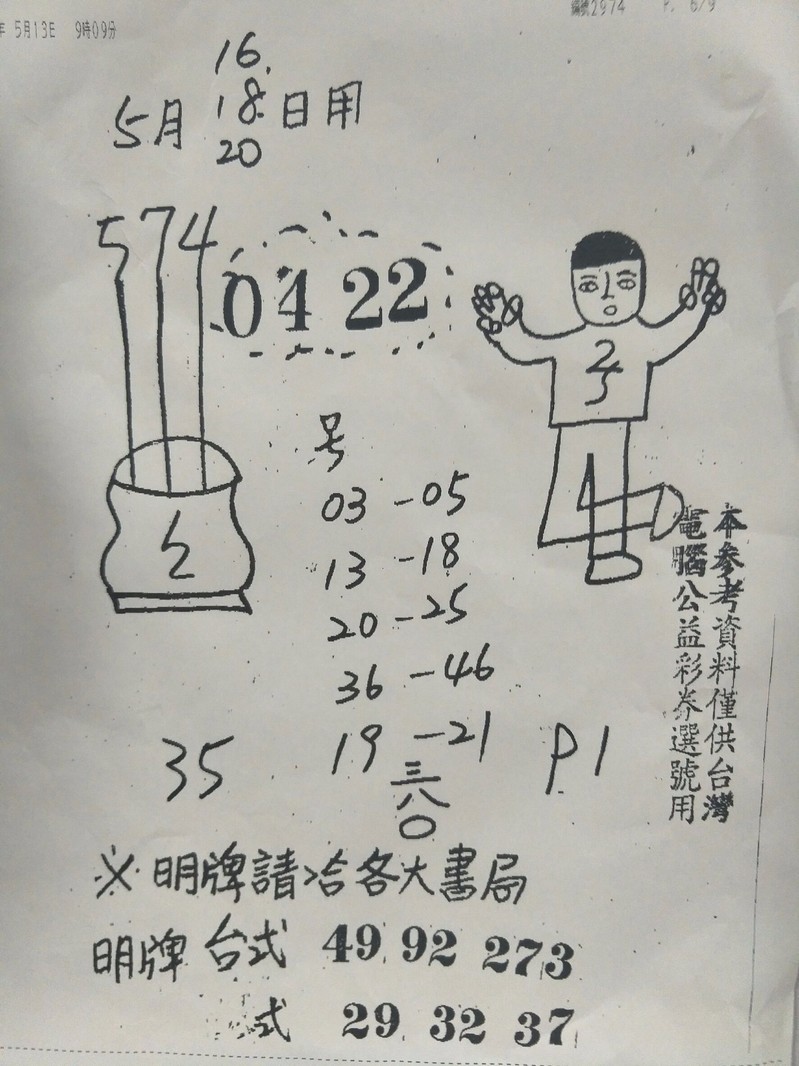 年 5月13日 9時09分
編號2974 P. 6/9
16.
5月 18. 日用
20
574
04 22
2
5
1
号
03 -05
13 -18
20 -25
36 -46
19 -21
三
八
〇
35
P1
本參考資料僅供台灣
電腦公益彩券選號用
※明牌請洽各大書局
明牌 台式 49 92 273
式 29 32 37